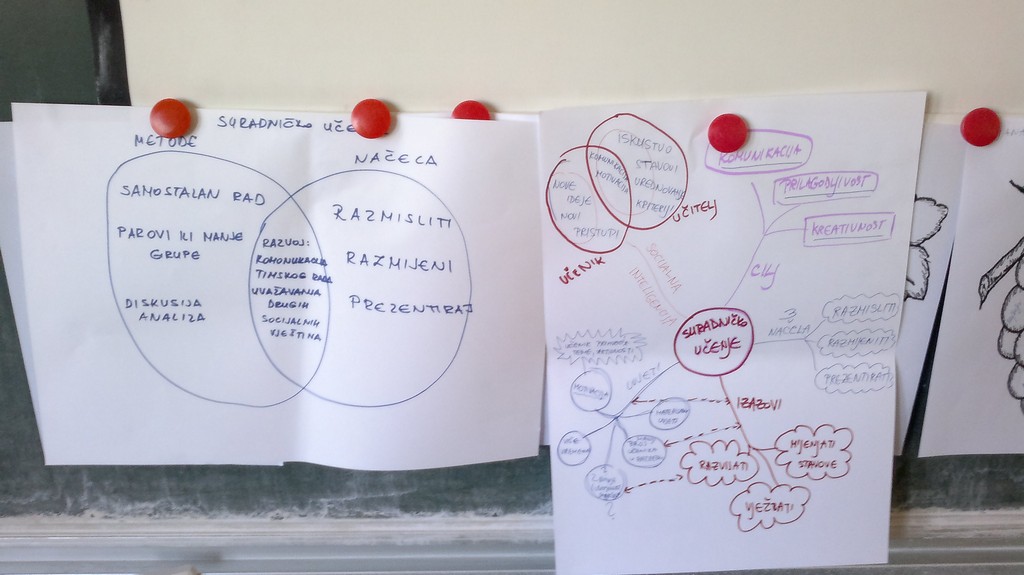 SURADNIČKO UČE
METODE
NAČELA
SAMOSTALAN RAD
PAROVI ILI MANJE
GRUPE
DISKUSIJA
ANALIZA
RAZVOJ:
TIMSKOG RADA
UVAŽAVANJA
DRUGIH
SOCIJALNIH
VJEŠTINA
RAZMISLITI
RAZMIJENI
PREZENTIRAJ
ISKUSTVO
STAVOVI
UREDNOVANJE
KRITERIJI
UČITELJ
KOMUNIKACIJA
MOTIVACIJA
NOVE
IDEJE
NOVI
PRISTUPI
UČENIK
SOCIJALNA
INTELIGENCIJA
KOMUNIKACIJA
PRILAGODLJIVOST
KREATIVNOST
CILJ
SURADNIČKO
UČENJE
3
NAČELA
RAZMISLITI
RAZMIJENITI
PREZENTIRATI
UVJETI
MOTIVACIJA
VIŠE
VREMENA
IZAZOVI
RAZVIJATI
MIJENJATI
STAVOVE
VJEŽBATI